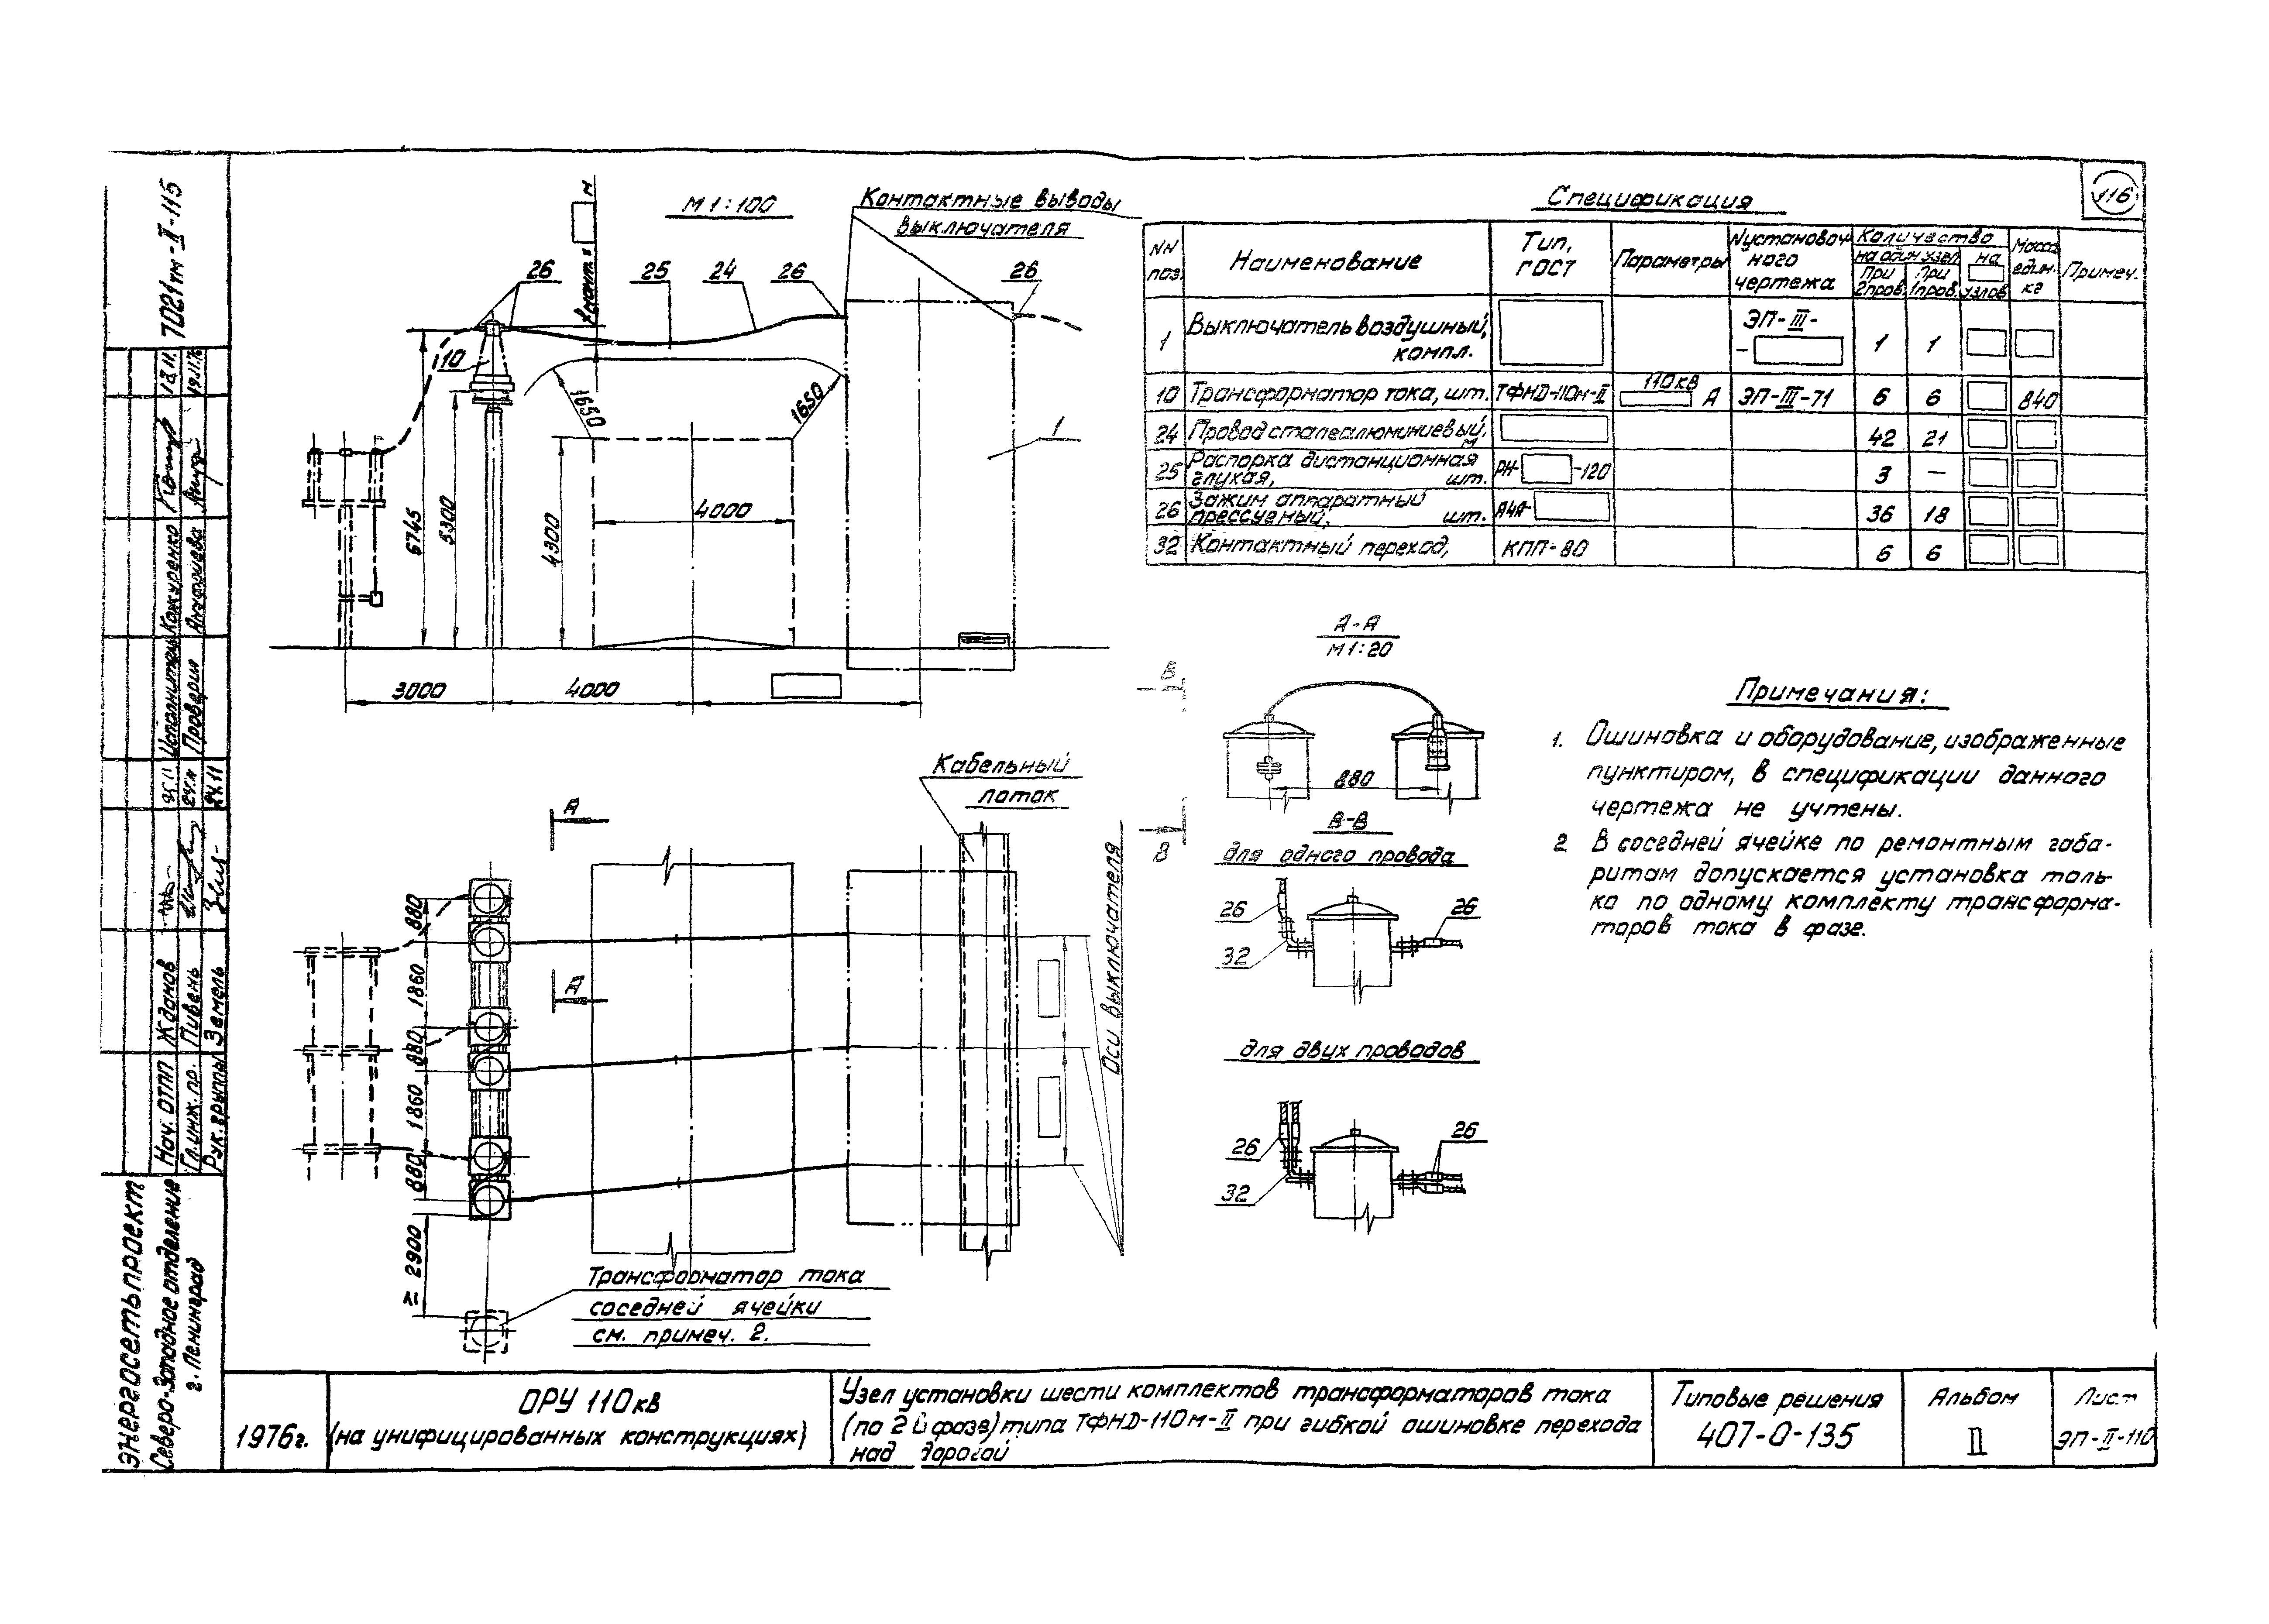 116
7021тм-II-115
М 1:100
Контактные выводы
выключателя
26
25
24
26
26
10
1650
1650
1
6745
5300
4300
4000
3000
4000
Спецификация
NN поз.
Наименование
Тип, ГОСТ
Параметры
N установоч-
ного
чертежа
Количество
на один узел
при 2 пров.
при 1 пров.
на
узлов
Масса
един.
кг
Примеч.
1 Выключатель воздушный, компл. ЭП-III- - 1 1
10 Трансформатор тока, шт. ТФНД-110м-II 110кв А ЭП-III-71 6 6 840
24 Провод сталеалюминиевый, м 42 21
25 Распорка дистанционная глухая, шт. РН- -120 3 —
26 Зажим аппаратный прессуемый, шт. А4А- 36 18
32 Контактный переход, КПП-80 6 6
А-А
М 1:20
В
880
В
В-В
для одного провода
26
26
32
для двух проводов
26
26
32
Примечания:
1. Ошиновка и оборудование, изображенные
пунктиром, в спецификации данного
чертежа не учтены.
2. В соседней ячейке по ремонтным габа-
ритам допускается установка толь-
ко по одному комплекту трансформа-
торов тока в фазе.
Кабельный
лоток
А
А
Оси выключателя
880
1860
880
1860
880
≥ 2900
Трансформатор тока
соседней ячейки
см. примеч. 2.
Исполнитель Кожуренко 18.11.
Проверил Ануфриева 19.11.76
Нач. ОТПП Жданов
Гл. инж. пр. Пивень
Рук. группы Земель 24.11
Энергосетьпроект
Северо-Западное отделение
г. Ленинград
1976г.
ОРУ 110кв
(на унифицированных конструкциях)
Узел установки шести комплектов трансформаторов тока
(по 2 в фазе) типа ТФНД-110м-II при гибкой ошиновке перехода
над дорогой
Типовые решения
407-0-135
Альбом
II
Лист
ЭП-II-110